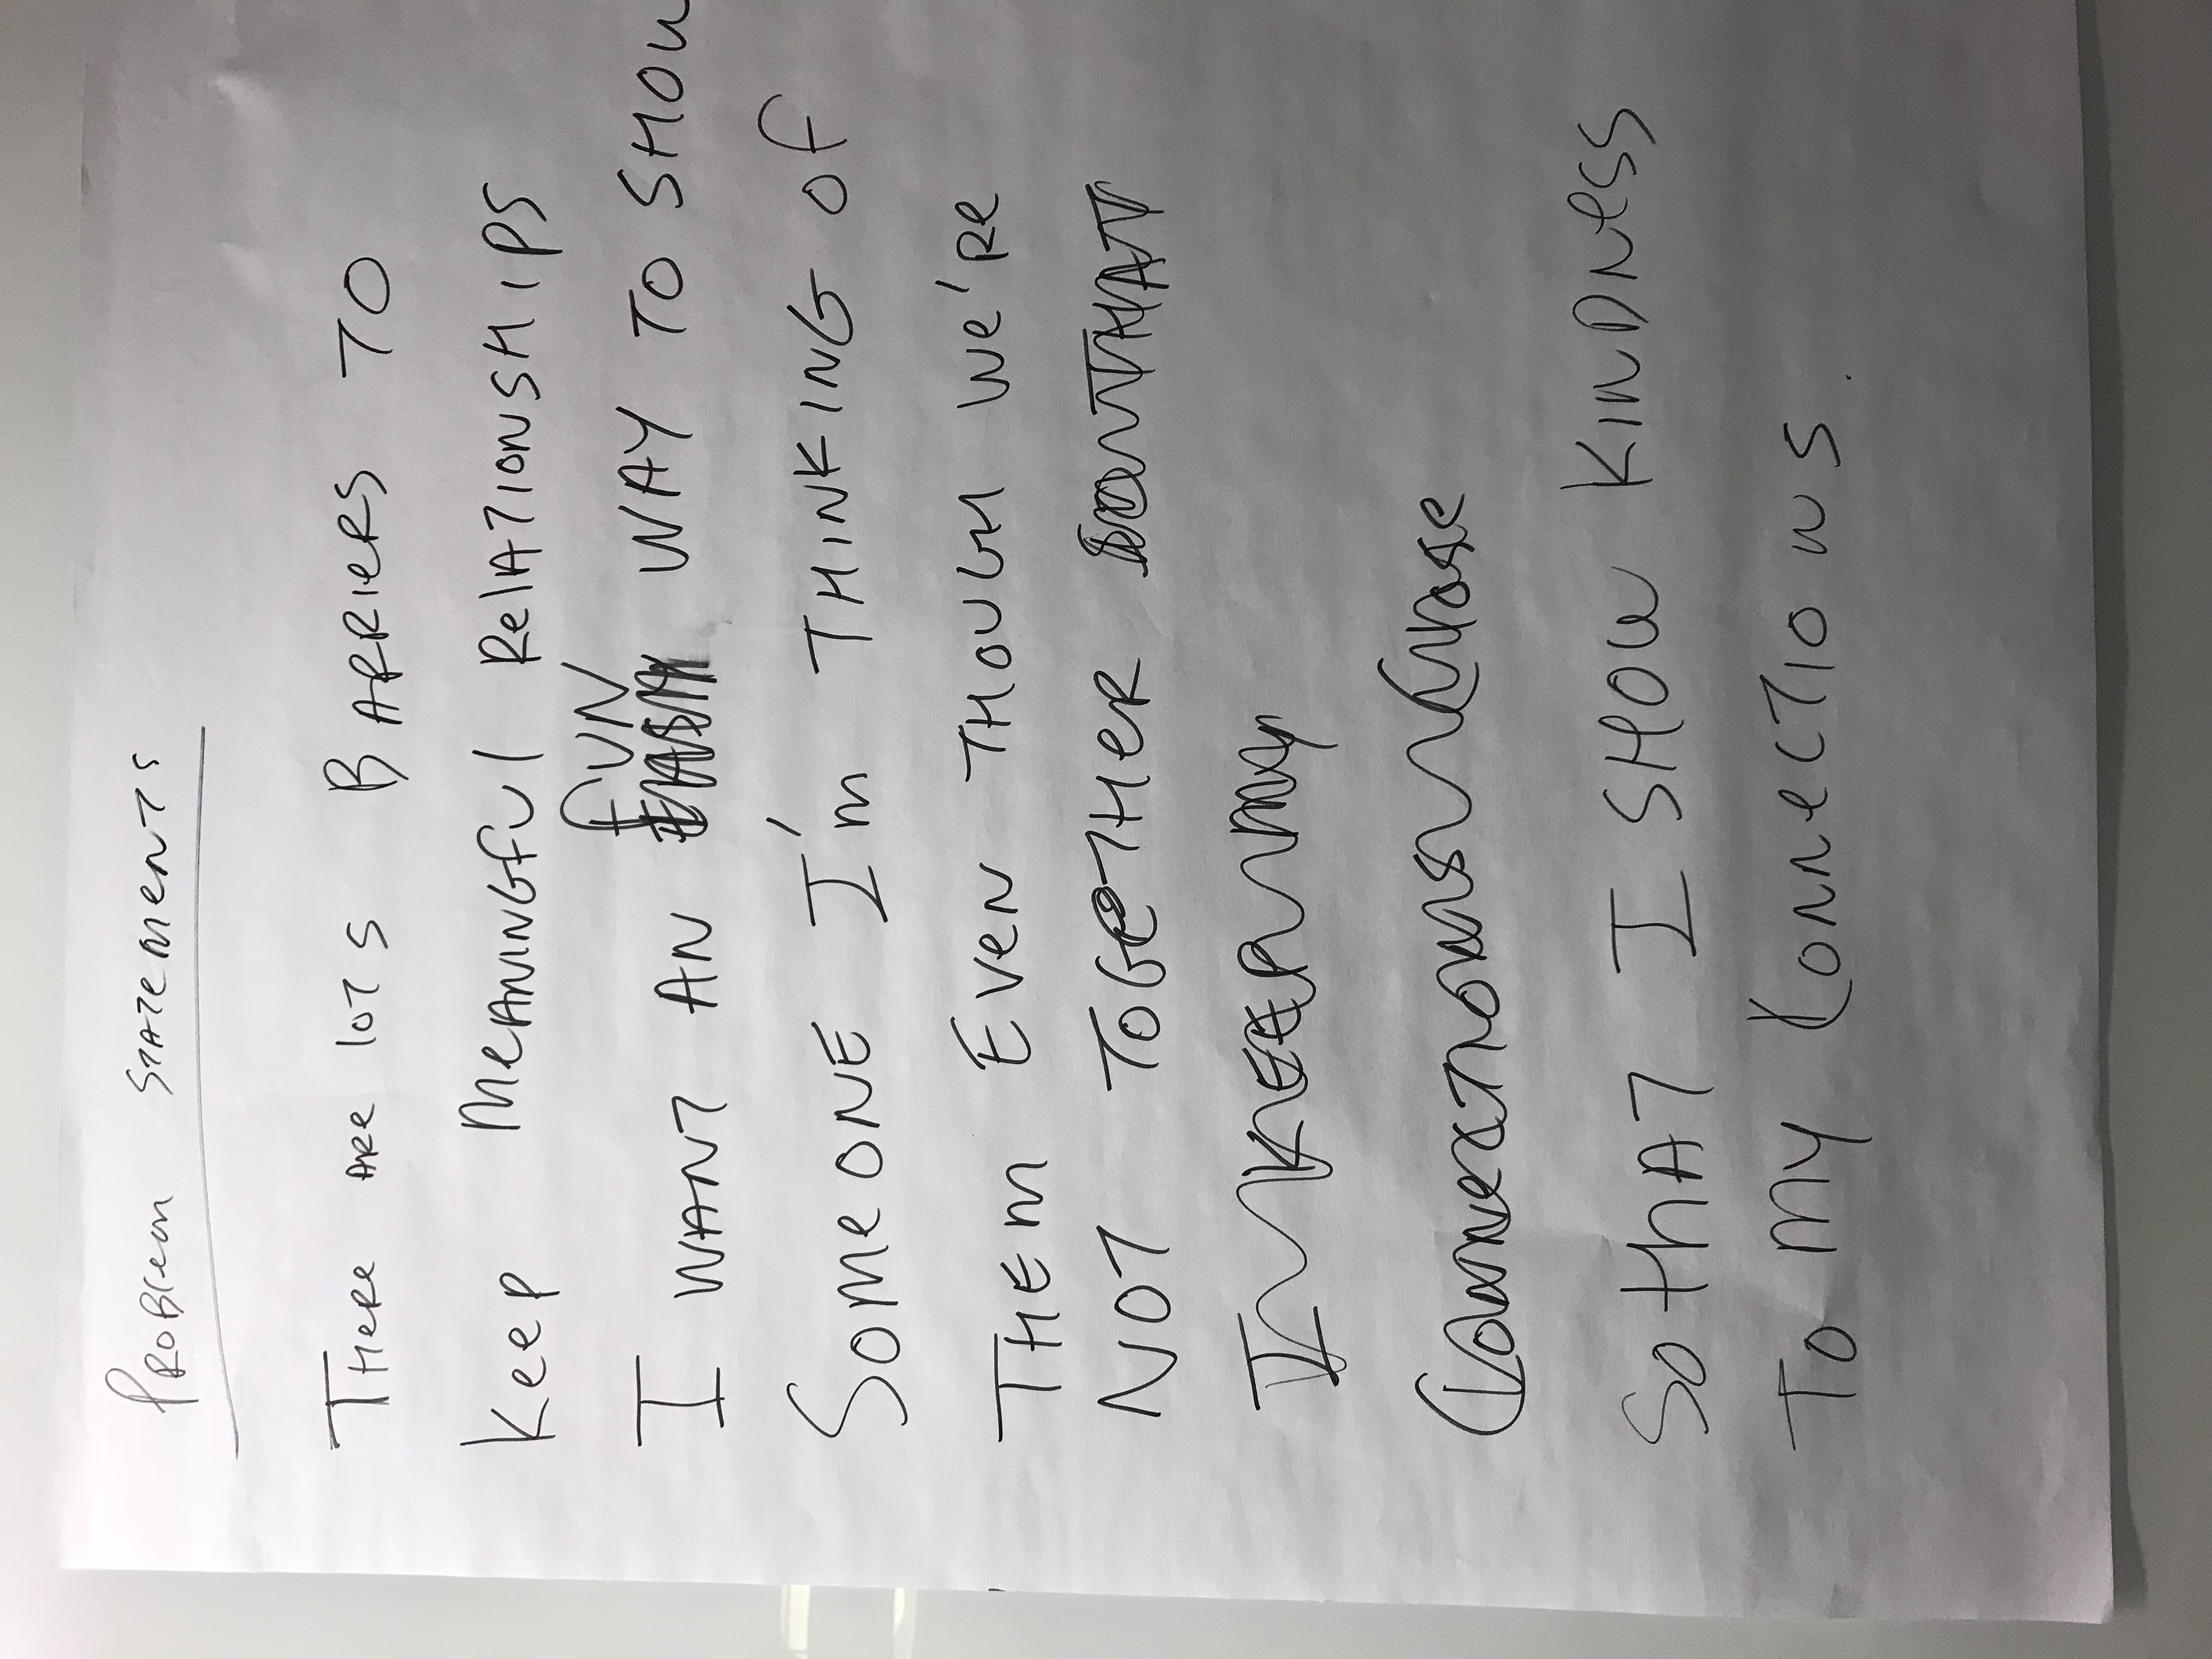 Problem Statements
There are lots Barriers to
Keep Meaningful Relationships
fun
I want an easy way to show
Someone I'm thinking of
Them Even though we're
not together so that
I keep my
Connections close
So that I show kindness
To my connections.